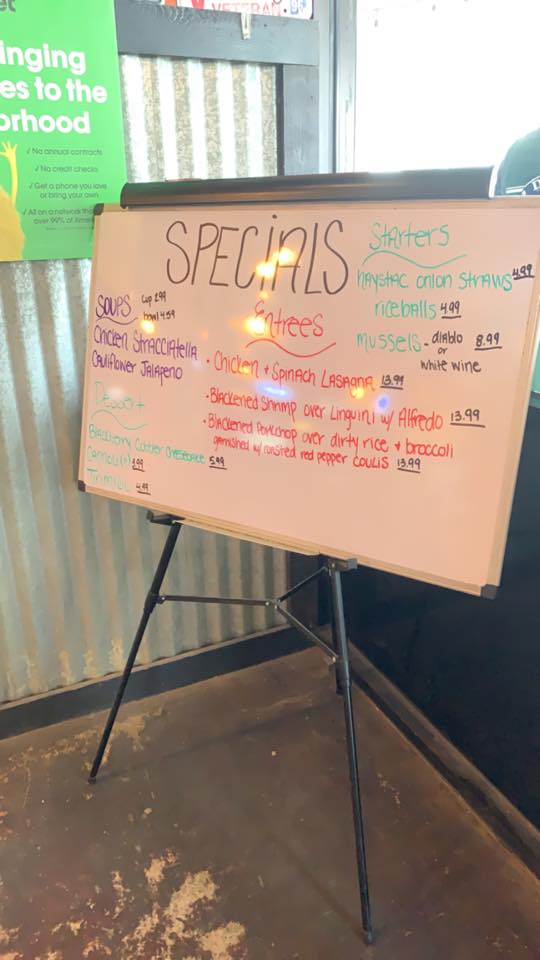 VETERAN
inging
es to the
orhood
✓ No annual contracts
✓ No credit checks
✓ Get a phone you love
or bring your own
✓ All on a network that
over 99% of
SPECIALS
Starters
Haystac onion straws 4.99
riceballs 4.99
mussels - diablo 8.99
or
white wine
Soups cup 2.99
bowl 4.59
Chicken Stracciatella
Cauliflower Jalapeno
Entrees
• Chicken + Spinach Lasagna 13.99
• Blackened Shrimp over Linguini w/ Alfredo 13.99
• Blackened Porkchop over dirty rice + broccoli
garnished w/ roasted red pepper coulis 13.99
Dessert
Blackberry Cobbler Cheesecake 5.99
4.99
4.99